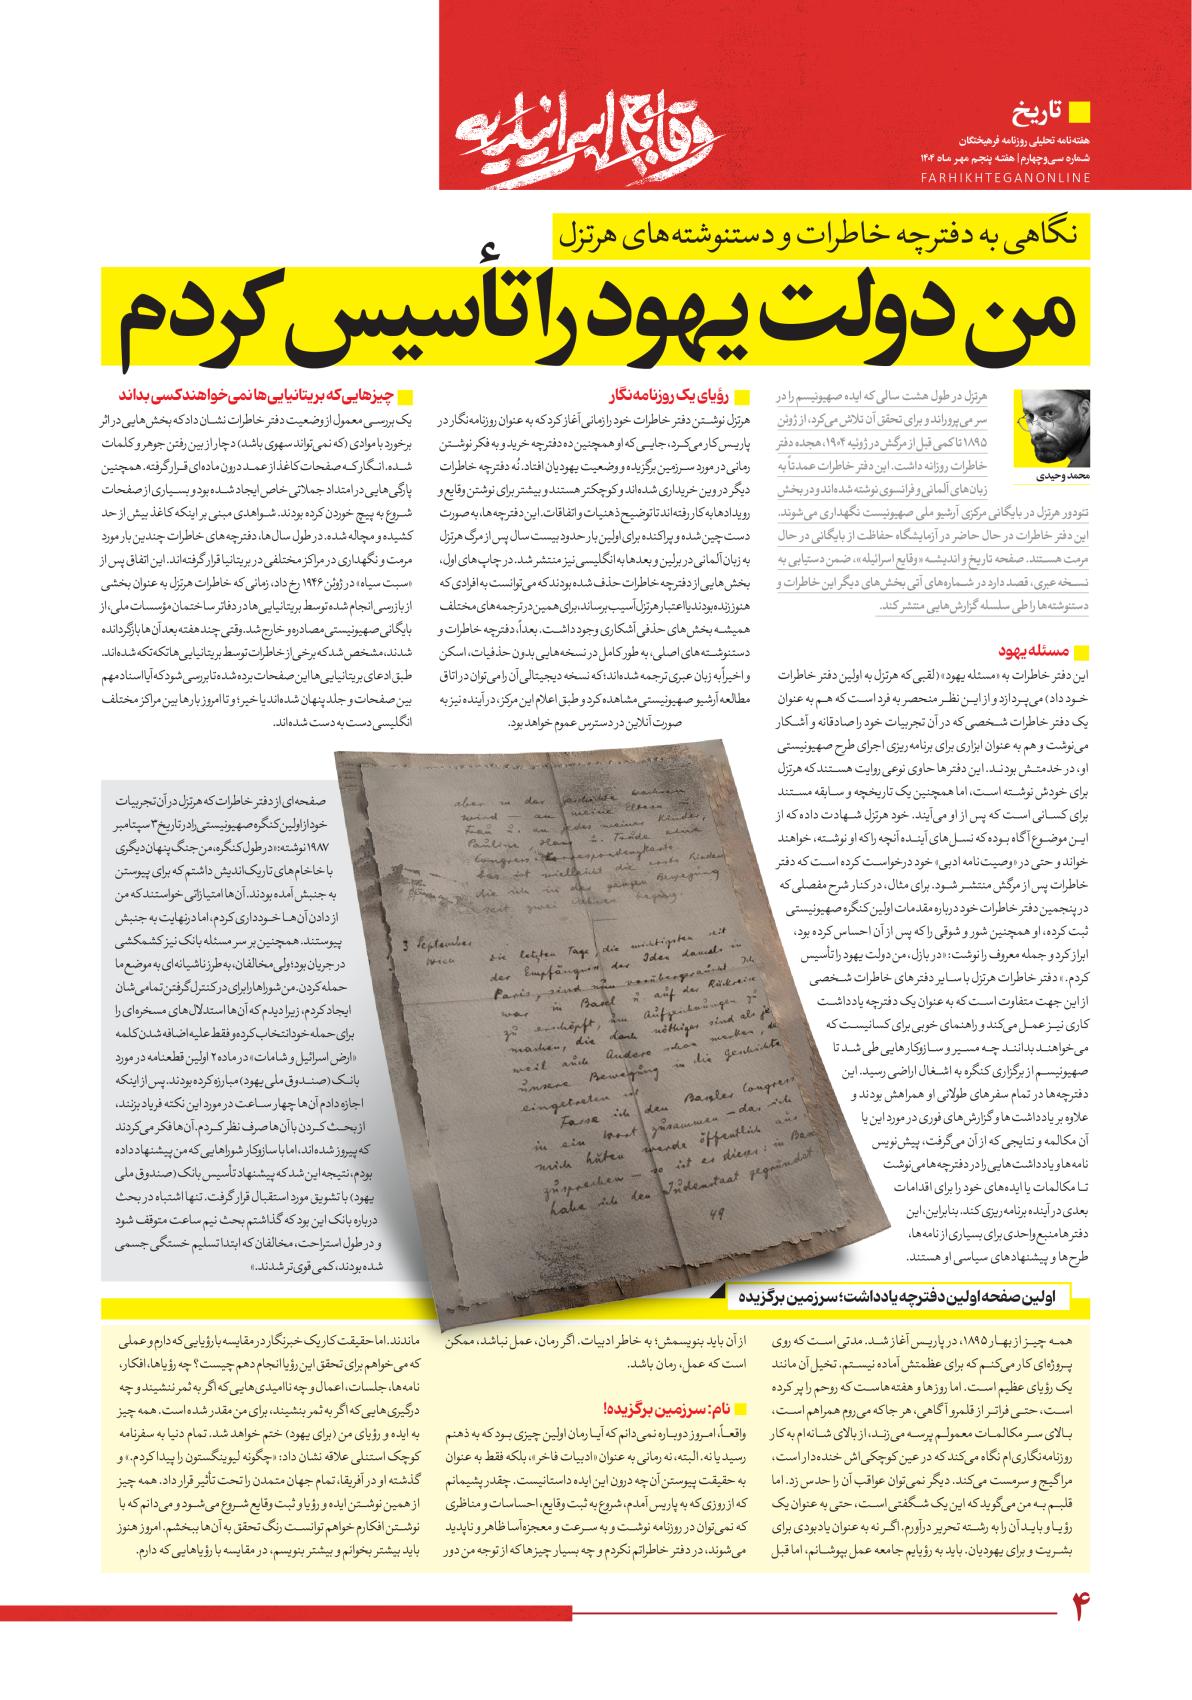 وقایع اسرائیلیه
تاریخ
هفته‌نامه تحلیلی روزنامه فرهیختگان
شماره سی‌وچهارم | هفته پنجم مهر ماه ۱۴۰۴
FARHIKHTEGANONLINE
نگاهی به دفترچه خاطرات و دستنوشته‌های هرتزل
من دولت یهود را تأسیس کردم
محمد وحیدی
هرتزل در طول هشت سالی که ایده صهیونیسم را در
سر می‌پروراند و برای تحقق آن تلاش می‌کرد، از ژوئن
۱۸۹۵ تا کمی قبل از مرگش در ژوئیه ۱۹۰۴، هجده دفتر
خاطرات روزانه داشت. این دفتر خاطرات عمدتاً به
زبان‌های آلمانی و فرانسوی نوشته شده‌اند و در بخش
تئودور هرتزل در بایگانی مرکزی آرشیو ملی صهیونیست نگهداری می‌شوند.
این دفتر خاطرات در حال حاضر در آزمایشگاه حفاظت از بایگانی در حال
مرمت هستند. صفحه تاریخ و اندیشه «وقایع اسرائیلیه»، ضمن دستیابی به
نسخه عبری، قصد دارد در شماره‌های آتی بخش‌های دیگر این خاطرات و
دستنوشته‌ها را طی سلسله گزارش‌هایی منتشر کند.
مسئله یهود
این دفتر خاطرات به «مسئله یهود» (لقبی که هرتزل به اولین دفتر خاطرات
خود داد) می‌پردازد و از این نظر منحصر به فرد است که هم به عنوان
یک دفتر خاطرات شخصی که در آن تجربیات خود را صادقانه و آشکار
می‌نوشت و هم به عنوان ابزاری برای برنامه‌ریزی اجرای طرح صهیونیستی
او، در خدمتش بودند. این دفترها حاوی نوعی روایت هستند که هرتزل
برای خودش نوشته است، اما همچنین یک تاریخچه و سابقه مستند
برای کسانی است که پس از او می‌آیند. خود هرتزل شهادت داده که از
این موضوع آگاه بوده که نسل‌های آینده آنچه را که او نوشته، خواهند
خواند و حتی در «وصیت‌نامه ادبی» خود درخواست کرده است که دفتر
خاطرات پس از مرگش منتشر شود. برای مثال، در کنار شرح مفصلی که
در پنجمین دفتر خاطرات خود درباره مقدمات اولین کنگره صهیونیستی
ثبت کرده، او همچنین شور و شوقی را که پس از آن احساس کرده بود،
ابراز کرد و جمله معروف را نوشت: «در بازل، من دولت یهود را تأسیس
کردم.» دفتر خاطرات هرتزل با سایر دفترهای خاطرات شخصی
از این جهت متفاوت است که به عنوان یک دفترچه یادداشت
کاری نیز عمل می‌کند و راهنمای خوبی برای کسانیست که
می‌خواهند بدانند چه مسیر و سازوکارهایی طی شد تا
صهیونیسم از برگزاری کنگره به اشغال اراضی رسید. این
دفترچه‌ها در تمام سفرهای طولانی او همراهش بودند و
علاوه بر یادداشت‌ها و گزارش‌های فوری در مورد این یا
آن مکالمه و نتایجی که از آن می‌گرفت، پیش‌نویس
نامه‌ها و یادداشت‌هایی را در دفترچه‌ها می‌نوشت
تا مکالمات یا ایده‌های خود را برای اقدامات
بعدی در آینده برنامه‌ریزی کند. بنابراین، این
دفترها منبع واحدی برای بسیاری از نامه‌ها،
طرح‌ها و پیشنهادهای سیاسی او هستند.
رؤیای یک روزنامه‌نگار
هرتزل نوشتن دفتر خاطرات خود را زمانی آغاز کرد که به عنوان روزنامه‌نگار در
پاریس کار می‌کرد، جایی که او همچنین ده دفترچه خرید و به فکر نوشتن
رمانی در مورد سرزمین برگزیده و وضعیت یهودیان افتاد. نُه دفترچه خاطرات
دیگر در وین خریداری شده‌اند و کوچکتر هستند و بیشتر برای نوشتن وقایع و
رویدادها به کار رفته‌اند تا توضیح ذهنیات و اتفاقات. این دفترچه‌ها، به صورت
دست‌چین شده و پراکنده برای اولین بار حدود بیست سال پس از مرگ هرتزل
به زبان آلمانی در برلین و بعدها به انگلیسی نیز منتشر شد. در چاپ‌های اول،
بخش‌هایی از دفترچه خاطرات حذف شده بودند که می‌توانست به افرادی که
هنوز زنده بودند یا اعتبار هرتزل آسیب برساند، برای همین در ترجمه‌های مختلف
همیشه بخش‌های حذفی آشکاری وجود داشت. بعداً، دفترچه خاطرات و
دستنوشته‌های اصلی، به طور کامل در نسخه‌هایی بدون حذفیات، اسکن
و اخیراً به زبان عبری ترجمه شده‌اند؛ که نسخه دیجیتالی آن را می‌توان در اتاق
مطالعه آرشیو صهیونیستی مشاهده کرد و طبق اعلام این مرکز، در آینده نیز به
صورت آنلاین در دسترس عموم خواهد بود.
چیزهایی که بریتانیایی‌ها نمی‌خواهند کسی بداند
یک بررسی معمول از وضعیت دفتر خاطرات نشان داد که بخش‌هایی در اثر
برخورد با موادی (که نمی‌تواند سهوی باشد) دچار از بین رفتن جوهر و کلمات
شده. انگار که صفحات کاغذ از عمد درون ماده‌ای قرار گرفته. همچنین
پارگی‌هایی در امتداد جملاتی خاص ایجاد شده بود و بسیاری از صفحات
شروع به پیچ خوردن کرده بودند. شواهدی مبنی بر اینکه کاغذ بیش از حد
کشیده و مچاله شده. در طول سال‌ها، دفترچه‌های خاطرات چندین بار مورد
مرمت و نگهداری در مراکز مختلفی در بریتانیا قرار گرفته‌اند. این اتفاق پس از
«سبت سیاه» در ژوئن ۱۹۴۶ رخ داد، زمانی که خاطرات هرتزل به عنوان بخشی
از بازرسی انجام شده توسط بریتانیایی‌ها در دفاتر ساختمان مؤسسات ملی، از
بایگانی صهیونیستی مصادره و خارج شد. وقتی چند هفته بعد آن‌ها بازگردانده
شدند، مشخص شد که برخی از خاطرات توسط بریتانیایی‌ها تکه تکه شده‌اند.
طبق ادعای بریتانیایی‌ها این صفحات برده شده تا بررسی شود که آیا اسناد مهم
بین صفحات و جلد پنهان شده‌اند یا خیر؛ و تا امروز بارها بین مراکز مختلف
انگلیسی دست به دست شده‌اند.
صفحه‌ای از دفتر خاطرات که هرتزل در آن تجربیات
خود از اولین کنگره صهیونیستی را در تاریخ ۳ سپتامبر
۱۹۸۷ نوشته: «در طول کنگره، من جنگ پنهان دیگری
با خاخام‌های تاریک‌اندیش داشتم که برای پیوستن
به جنبش آمده بودند. آن‌ها امتیازاتی خواستند که من
از دادن آن‌ها خودداری کردم، اما درنهایت به جنبش
پیوستند. همچنین بر سر مسئله بانک نیز کشمکشی
در جریان بود؛ ولی مخالفان، به طرز ناشیانه‌ای به موضع ما
حمله کردن. من شوراها را برای در کنترل گرفتن تمامی‌شان
ایجاد کردم، زیرا دیدم که آن‌ها استدلال‌های مسخره‌ای را
برای حمله خود انتخاب کرده و فقط علیه اضافه شدن کلمه
«ارض اسرائیل و شامات» در ماده ۲ اولین قطعنامه در مورد
بانک (صندوق ملی یهود) مبارزه کرده بودند. پس از اینکه
اجازه دادم آن‌ها چهار ساعت در مورد این نکته فریاد بزنند،
از بحث کردن با آن‌ها صرف نظر کردم. آن‌ها فکر می‌کردند
که پیروز شده‌اند، اما با سازوکار شوراهایی که من پیشنهاد داده
بودم، نتیجه این شد که پیشنهاد تأسیس بانک (صندوق ملی
یهود) با تشویق مورد استقبال قرار گرفت. تنها اشتباه در بحث
درباره بانک این بود که گذاشتم بحث نیم ساعت متوقف شود
و در طول استراحت، مخالفان که ابتدا تسلیم خستگی جسمی
شده بودند، کمی قوی‌تر شدند.»
3 September
die letzten Tage, die wichtigsten seit
der Empfängnis der Idee damals in
Paris, sind nun vorübergerauscht. Ich
war in Basel u. auf der Rückreise
zu erschöpft, um Aufzeichnungen zu
machen, die doch nöthiger sind als je
weil auch Andere schon merken, da
unsere Bewegung in die Geschichte
eingetreten ist.
Fasse ich den Basler Congress
in ein Wort zusammen – das ich
mich hüten werde öffentlich aus
zusprechen – so ist es dieses: in Basel
habe ich den Judenstaat gegründet.
49
اولین صفحه اولین دفترچه یادداشت؛ سرزمین برگزیده
همه چیز از بهار ۱۸۹۵، در پاریس آغاز شد. مدتی است که روی
پروژه‌ای کار می‌کنم که برای عظمتش آماده نیستم. تخیل آن مانند
یک رؤیای عظیم است. اما روزها و هفته‌هاست که روحم را پر کرده
است، حتی فراتر از قلمرو آگاهی، هر جا که می‌روم همراهم است،
بالای سر مکالمات معمولم پرسه می‌زند، از بالای شانه‌ام به کار
روزنامه‌نگاری‌ام نگاه می‌کند که در عین کوچکی‌اش خنده‌دار است،
مرا گیج و سرمست می‌کند. دیگر نمی‌توان عواقب آن را حدس زد. اما
قلبم به من می‌گوید که این یک شگفتی است، حتی به عنوان یک
رؤیا و باید آن را به رشته تحریر درآورم. اگر نه به عنوان یادبودی برای
بشریت و برای یهودیان. باید به رؤیایم جامعه عمل بپوشانم، اما قبل
از آن باید بنویسمش؛ به خاطر ادبیات. اگر رمان، عمل نباشد، ممکن
است که عمل، رمان باشد.
نام: سرزمین برگزیده!
واقعاً، امروز دوباره نمی‌دانم که آیا رمان اولین چیزی بود که به ذهنم
رسید یا نه. البته، نه رمانی به عنوان «ادبیات فاخر»، بلکه فقط به عنوان
به حقیقت پیوستن آن چه درون این ایده داستانیست. چقدر پشیمانم
که از روزی که به پاریس آمدم، شروع به ثبت وقایع، احساسات و مناظری
که نمی‌توان در روزنامه نوشت و به سرعت و معجزه‌آسا ظاهر و ناپدید
می‌شوند، در دفتر خاطراتم نکردم و چه بسیار چیزها که از توجه من دور
ماندند. اما حقیقت کار یک خبرنگار در مقایسه با رؤیایی که دارم و عملی
که می‌خواهم برای تحقق این رؤیا انجام دهم چیست؟ چه رؤیاها، افکار،
نامه‌ها، جلسات، اعمال و چه ناامیدی‌هایی که اگر به ثمر ننشیند و چه
درگیری‌هایی که اگر به ثمر بنشیند، برای من مقدر شده است. همه چیز
به ایده و رؤیای من (برای یهود) ختم خواهد شد. تمام دنیا به سفرنامه
کوچک استنلی علاقه نشان داد: «چگونه لیوینگستون را پیدا کردم.» و
گذشته او در آفریقا، تمام جهان متمدن را تحت تأثیر قرار داد. همه چیز
از همین نوشتن ایده و رؤیا و ثبت وقایع شروع می‌شود و می‌دانم که با
نوشتن افکارم خواهم توانست رنگ تحقق به آن‌ها ببخشم. امروز هنوز
باید بیشتر بخوانم و بیشتر بنویسم، در مقایسه با رؤیاهایی که دارم.
۴